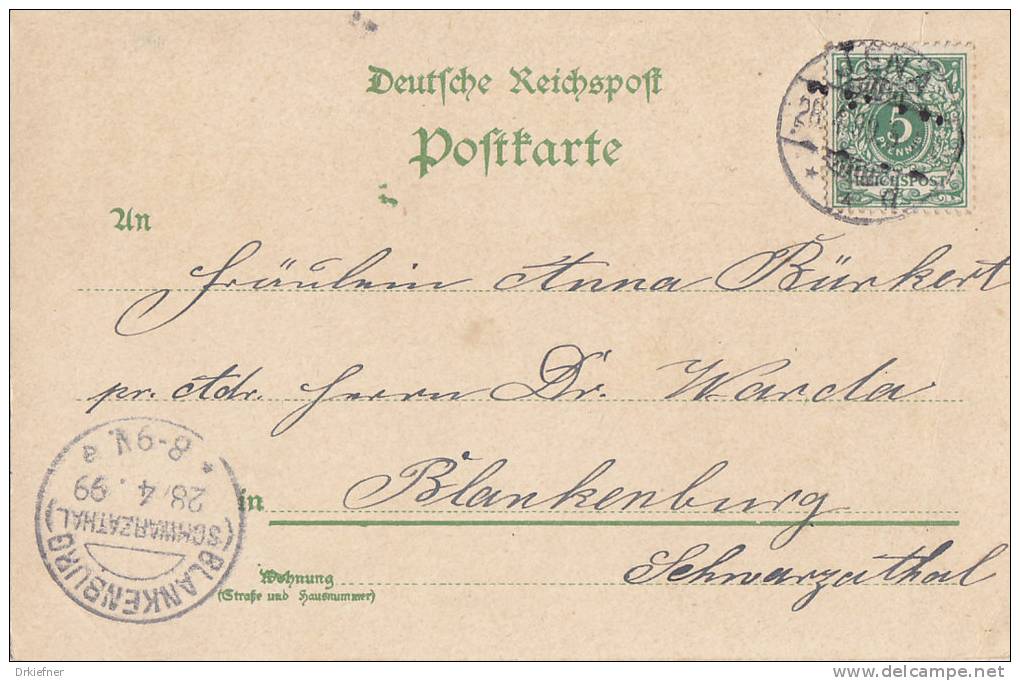 Deutsche Reichspost
Postkarte
JENA
5
PFENNIG
REICHSPOST
An
Fräulein Anna Bürkert
pr. Adr. Herrn Dr. Warda
in Blankenburg
Schwarzathal
Wohnung
(Straße und Hausnummer)
BLANKENBURG
(SCHWARZATHAL)
28. 4. 99
* 8-9 V. a
Drkiefner
www.delcampe.net